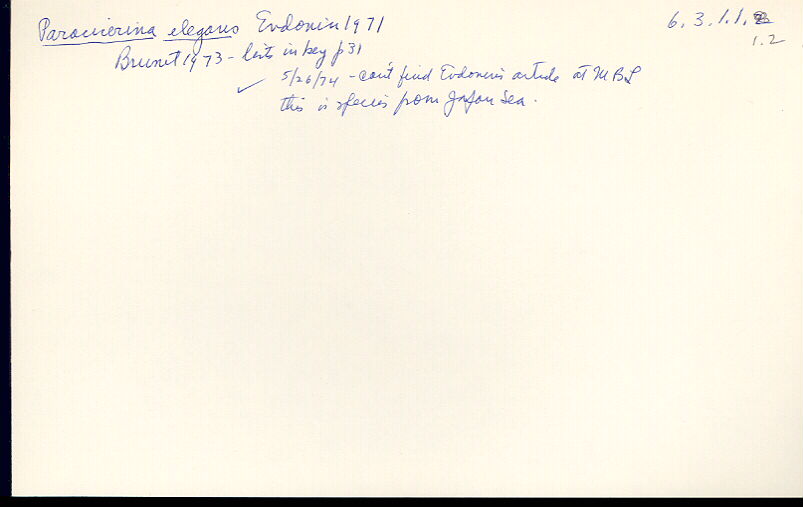 Paracicerina elegans Evdonin 1971
6.3.1.1.2
1.2
Brunet 1973 - lists in key p 31
✓ 5/26/74 - can't find Evdonin's article at MBL
this is species from Japan Sea.